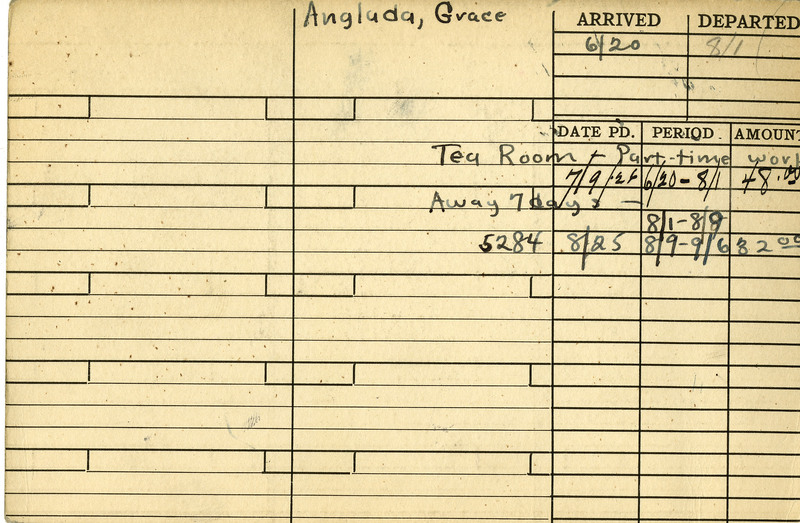 Anglada, Grace
ARRIVED DEPARTED
6/20 8/1
DATE PD. PERIOD AMOUNT
Tea Room + Part-time work
7/9/26 6/20-8/1 48.00
Away 7 days -
8/1-8/9
5284 8/25 8/9-9/6 32 00